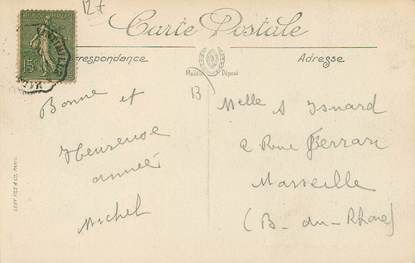 Carte Postale
Correspondance
Adresse
Modèle Déposé
15
Bonne et
Heureuse
année
Michel
Melle A Isnard
2 Rue Ferrari
Marseille
(B-du-Rhône)
LEVY FILS & Cie PARIS